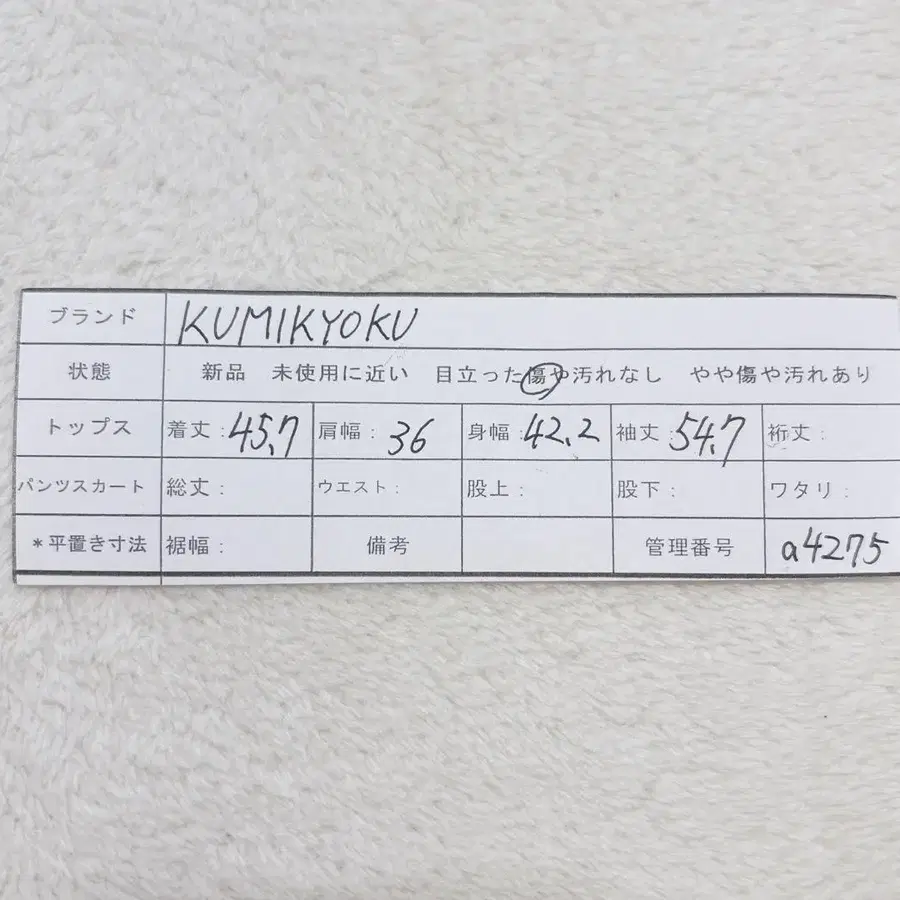 ブランド KUMIKYOKU
状態 新品 未使用に近い 目立った傷や汚れなし やや傷や汚れあり
トップス 着丈:45.7 肩幅:36 身幅:42.2 袖丈:54.7 裄丈:
パンツスカート 総丈: ウエスト: 股上: 股下: ワタリ:
*平置き寸法 裾幅: 備考 管理番号 a4275